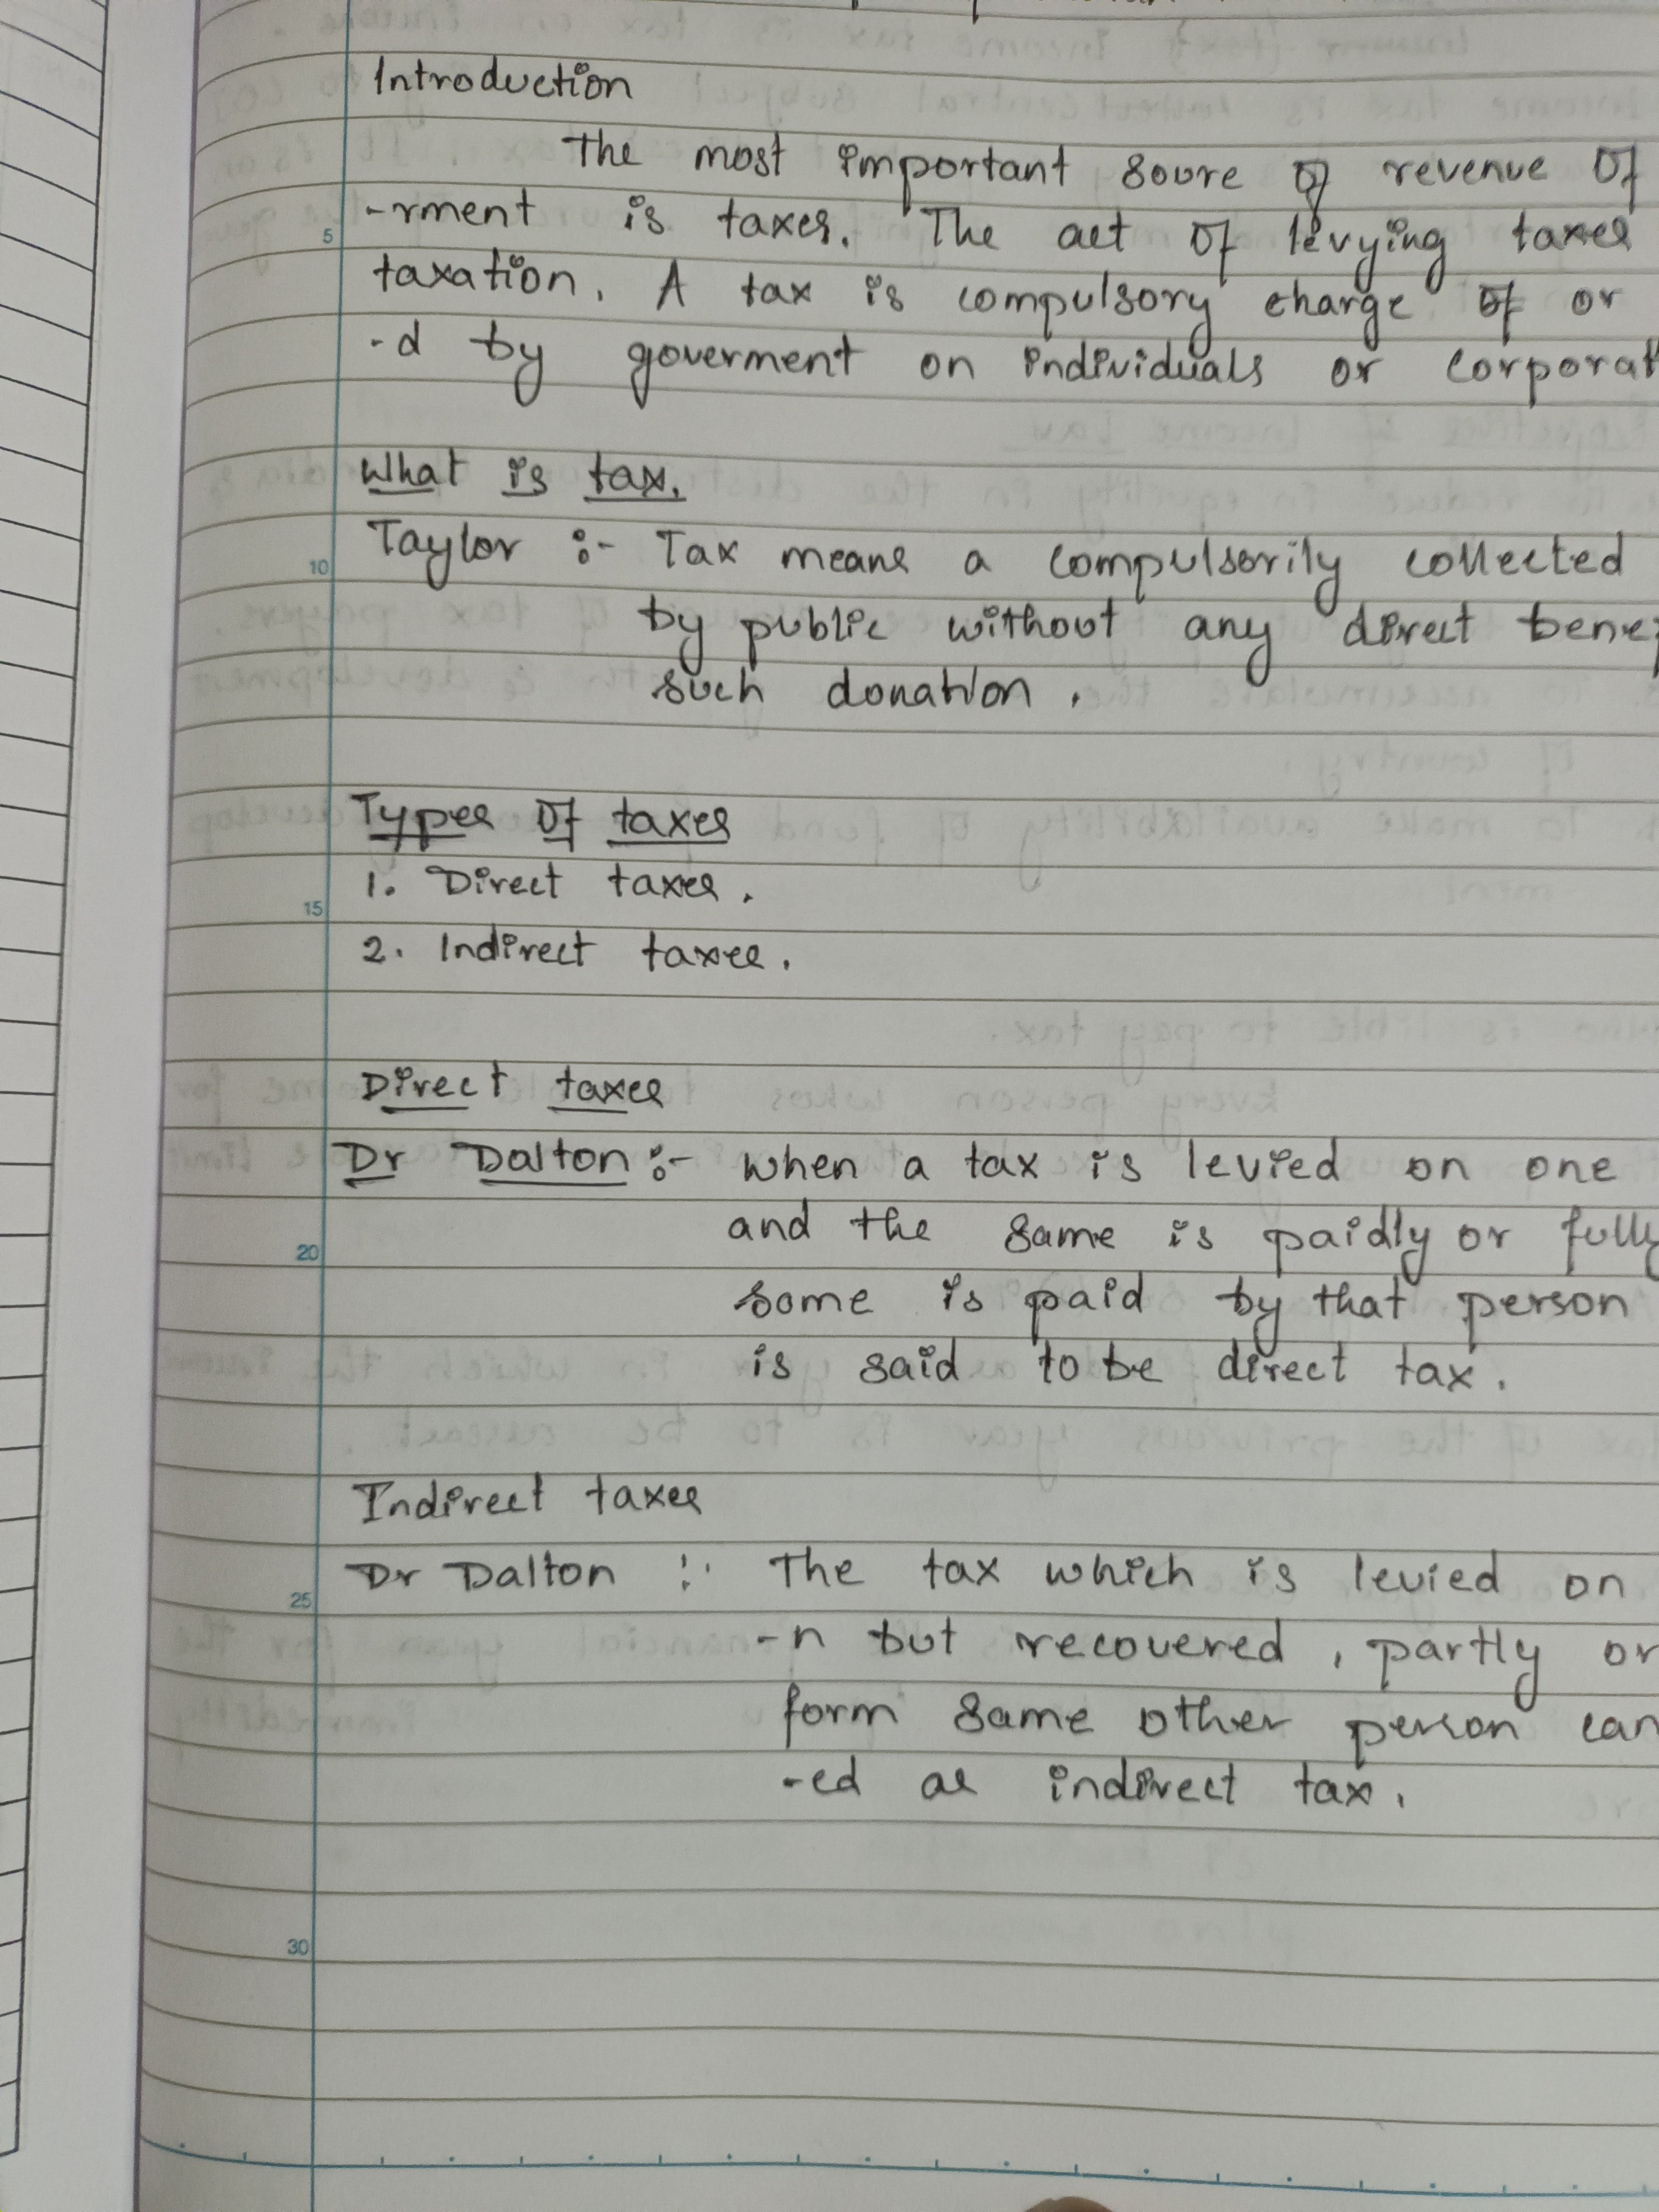 Introduction
The most important soure of revenue of
-rment is taxes. The act of levying taxes
5
taxation. A tax is compulsory charge of or
-d by goverment on individuals or corporat
What is tax.
Taylor :- Tax means a compulsorily collected
10
by public without any direct bene
such donation.
Types of taxes
1. Direct taxes.
15
2. Indirect taxes.
Direct taxes
Dr Dalton :- when a tax is levied on one
and the same is paidly or fully
20
some is paid by that person
is said to be direct tax.
Indirect taxes
Dr Dalton :- The tax which is levied on
25
-n but recovered, partly or
form same other person can
-ed as indirect tax.
30